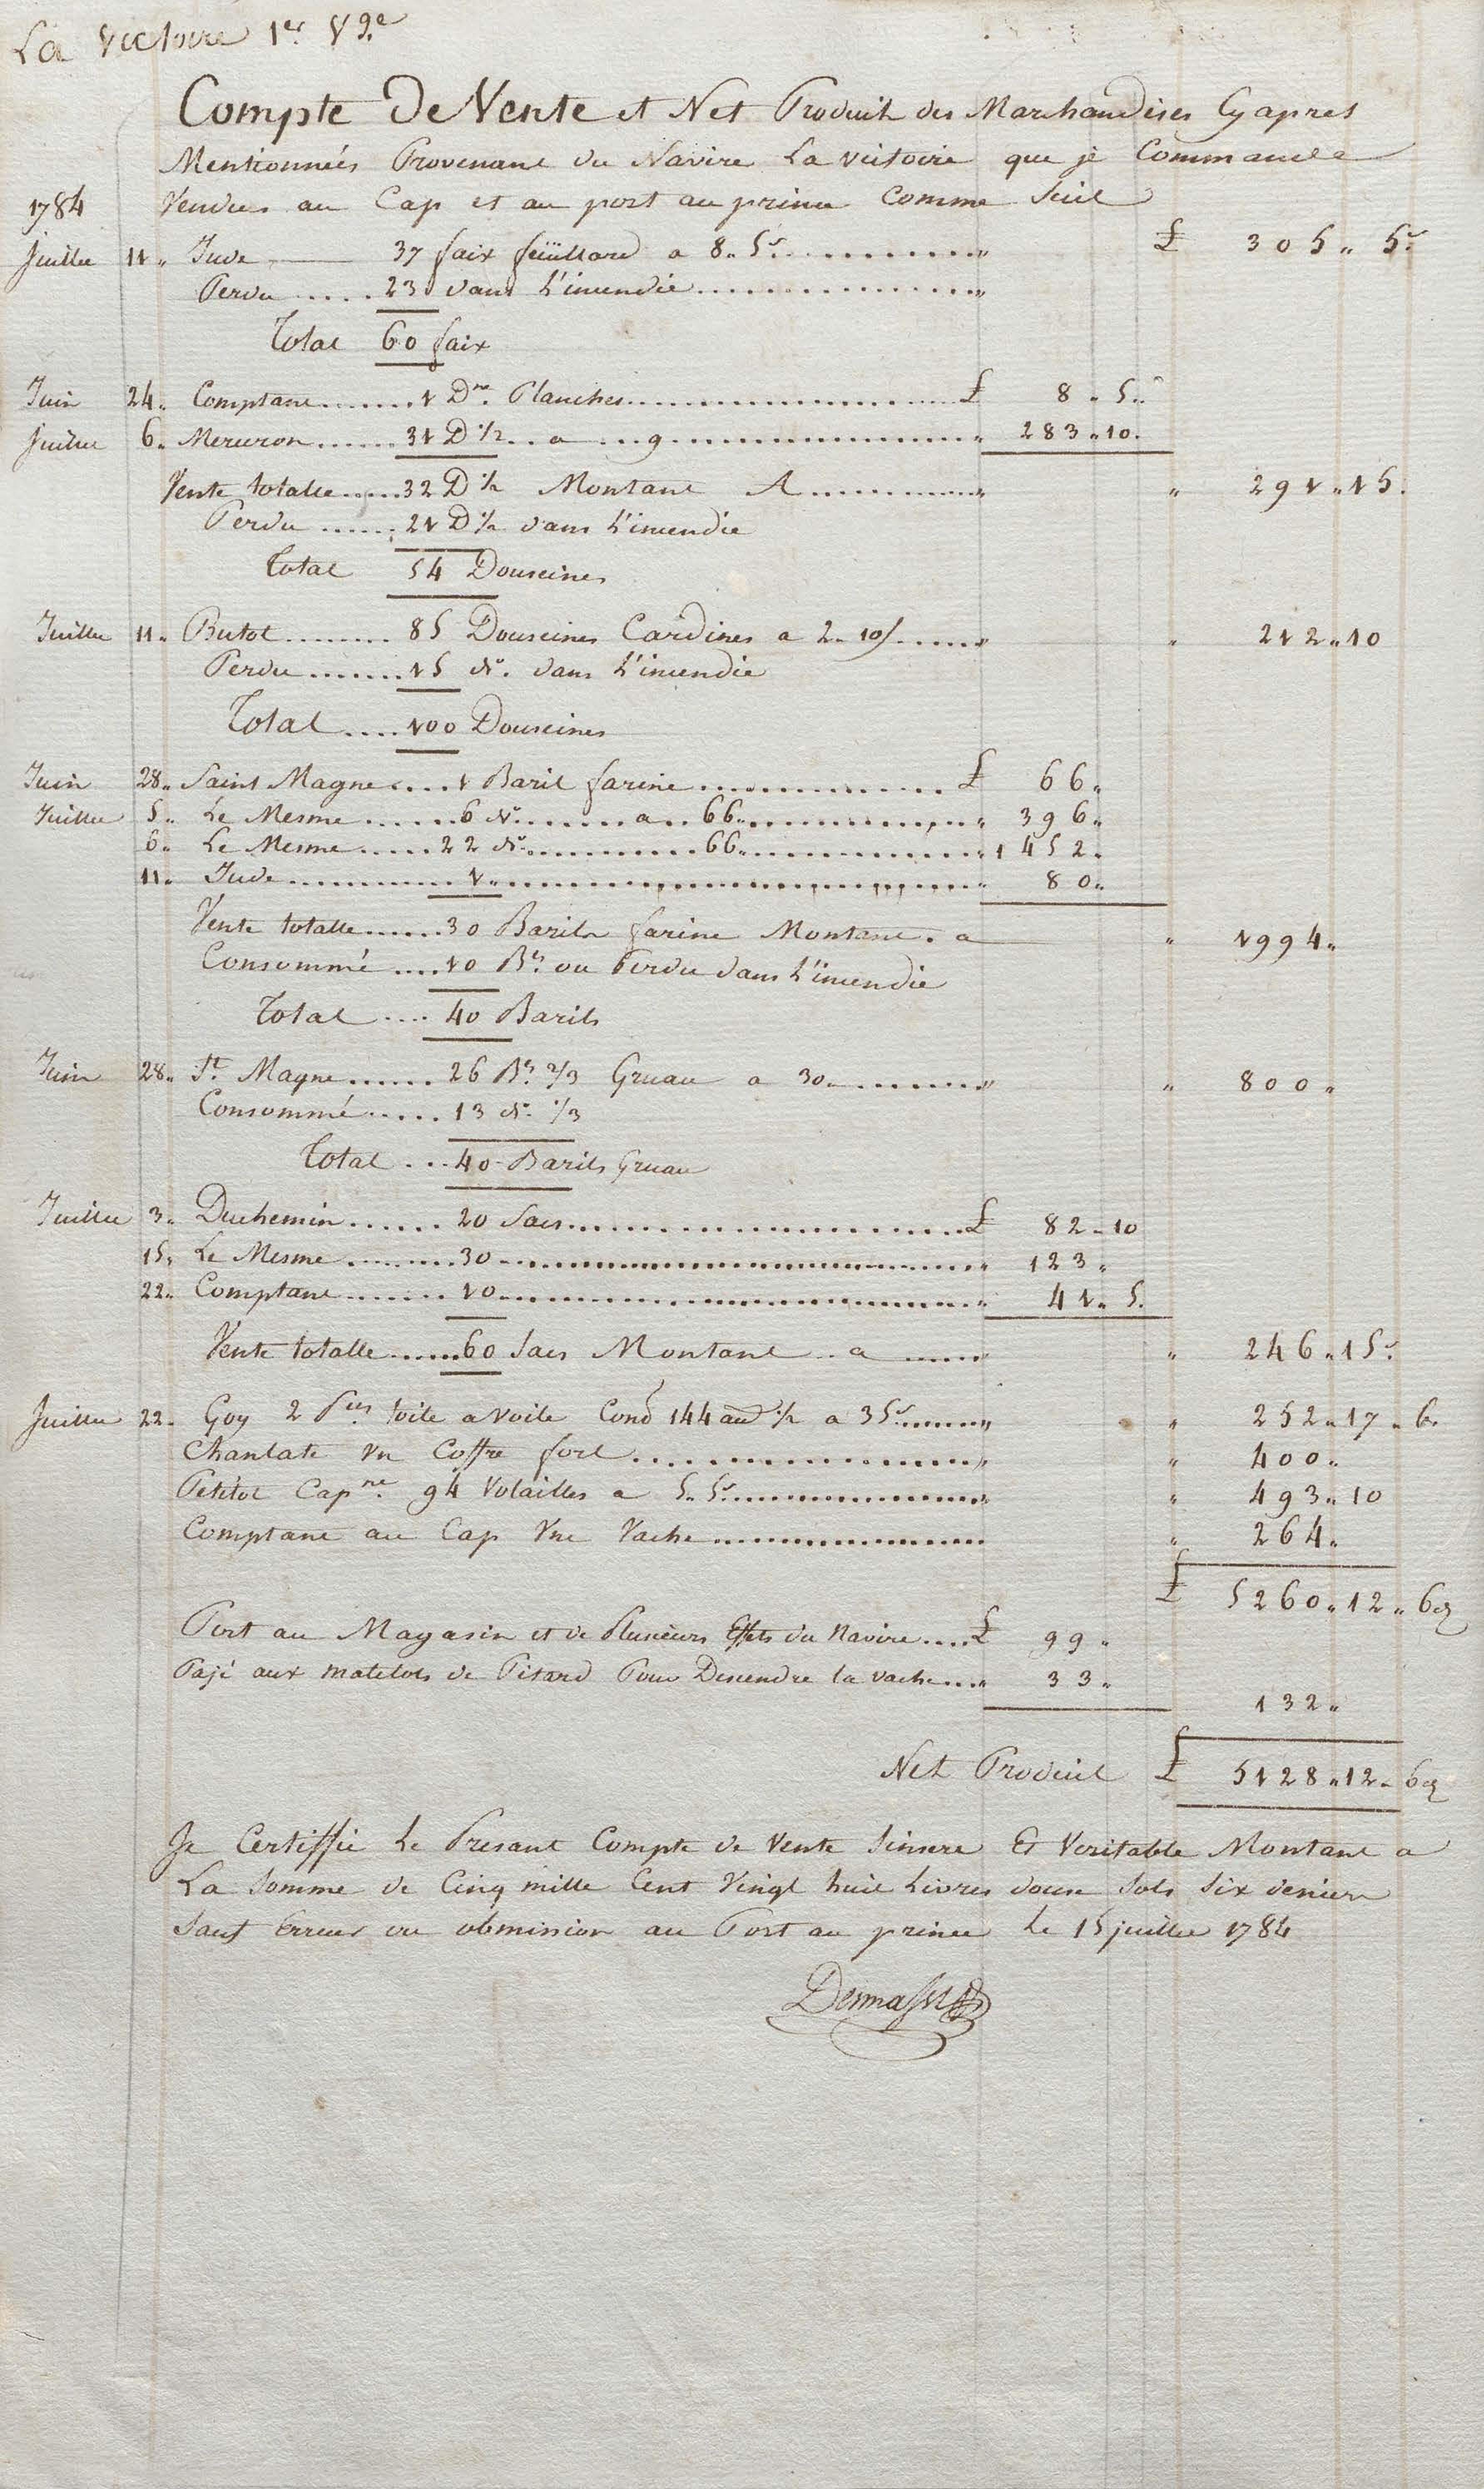 La Victoire 1er V.ge
Compte De Vente et Net Produit des Marchandises Cy apres
Mentionneés Provenant du Navire La victoire que je Commande
1784 Vendues au Cap et au port au prince Comme Suit
Juillet 11„ Jude 37 faix feüillard a 8„ 5s „ £ 305„ 5s
Perdu 23 dans L'incendie „
Total 60 faix
Juin 24„ Comptant 1 Dne Planches £ 8„ 5„
Juillet 6„ Mercuron 31 D 1/2 a 9 „ 283„10.
Vente totalle 32 D 1/2 Montant A „ „ 291„15.
Perdu 21 D 1/2 dans L'incendie
Total 54 Douseines
Juillet 11„ Butot 85 Douseines Cardines a 2„10s „ „ 212„10
Perdu 15 do. dans L'incendie
Total 100 Douseines
Juin 28„ Saint Magne 1 Baril farine £ 66„
Juillet 5„ Le Mesme 6 do. a 66 „ 396„
6„ Le Mesme 22 do. 66 „ 1452„
11„ Jude 1 „ 80„
Vente totalle 30 Barils farine Montant a „ 1994„
Consommé 10 Bls ou Perdu dans L'incendie
Total 40 Barils
Juin 28„ St Magne 26 Bls 2/3 Gruau a 30 „ „ 800„
Consommé 13 do. 1/3
Total 40 Barils Gruau
Juillet 3„ Duchemin 20 Sacs £ 82„10
15„ Le Mesme 30 „ 123„
22„ Comptant 10 „ 41„ 5.
Vente totalle 60 Sacs Montant a „ „ 246„15s
Juillet 22„ Goy 2 Pces toile a Voile Cond 144 aunes 1/2 a 35s „ „ 252„17„6
Chanlate Un Coffre fort „ „ 400„
Petitot Capne 94 Volailles a 5„5s „ „ 493„10
Comptant au Cap Une Vache „ 264„
£ 5260„12„6d
Port au Magasin et de Plusieurs Effets du Navire £ 99„
Pajé aux matelots de Pitard Pour Descendre la vache „ 33„
132„
Net Produit £ 5128„12„6d
Je Certiffie Le Presant Compte de Vente Sinsere Et Veritable Montant a
La Somme de Cinq mille Cent Vingt huit Livres douse Sols Six deniers
Sauf Erreur ou obmission au Port au prince Le 15 juillet 1784